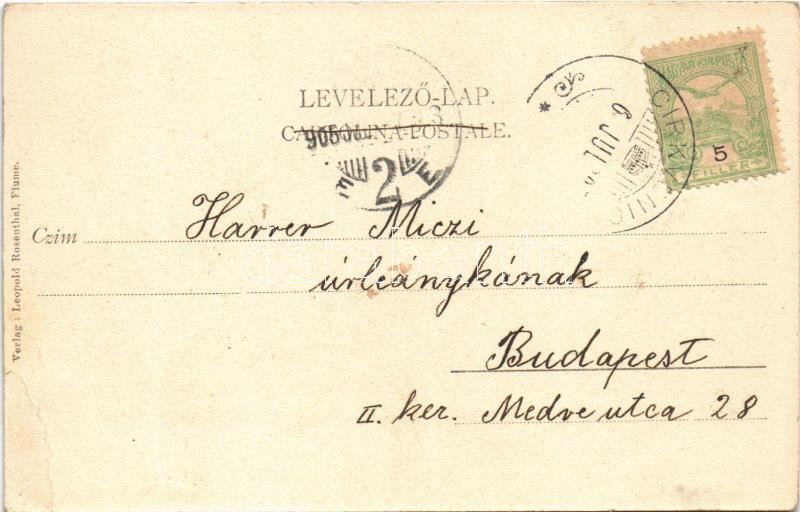 LEVELEZŐ-LAP.
CARTOLINA-POSTALE.
MAGYAR KIR. POSTA
5
FILLER
CIRKVENIC
JUL 9
905 JUL
2
Czim
Harrer Miczi
úrleánykának
Budapest
II. ker. Medve utca 28
Verlag: Leopold Rosenthal, Fiume.